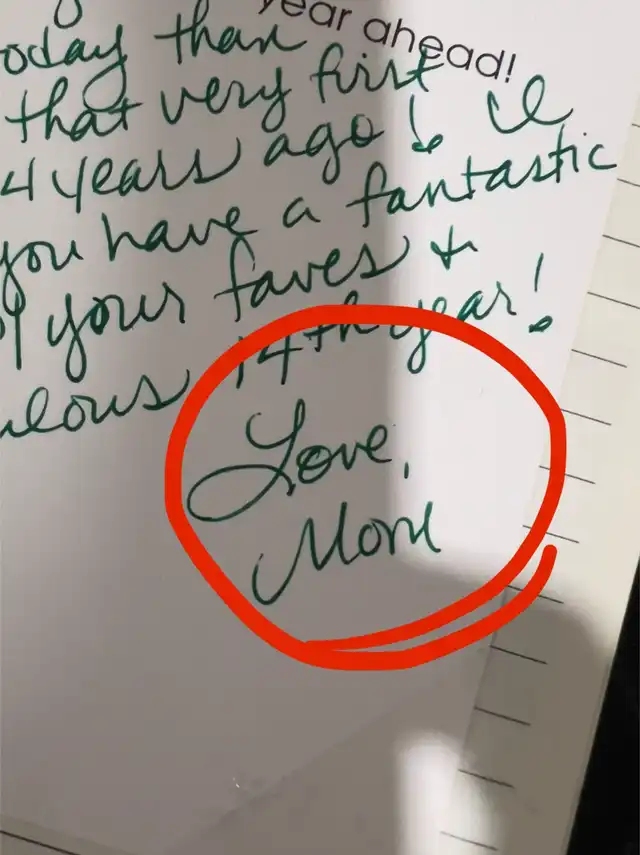 year ahead!
today than
that very first
4 years ago! I
you have a fantastic
your faves +
14th year!
Love,
Mom